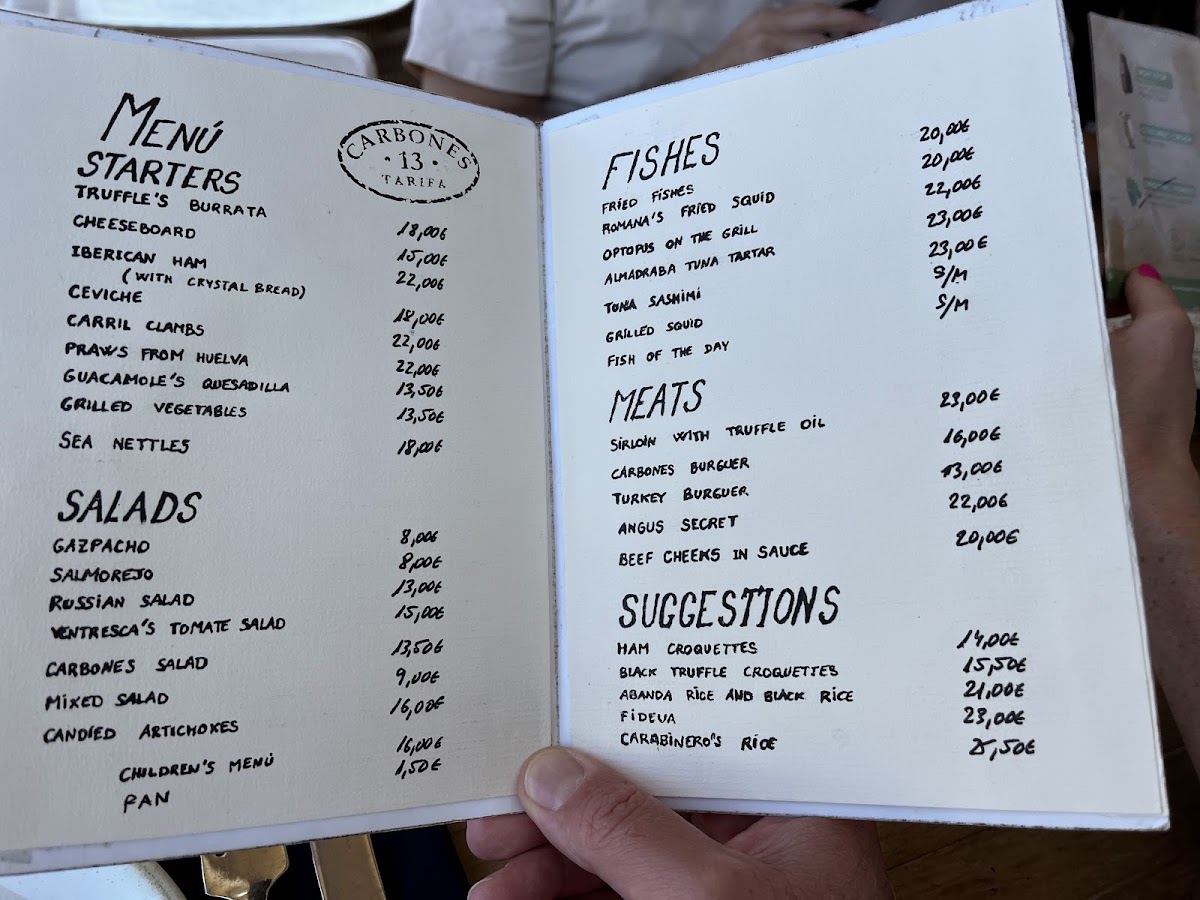 MENÚ
CARBONES
· 13 ·
TARIFA
STARTERS
TRUFFLE'S BURRATA 18,00€
CHEESEBOARD 15,00€
IBERICAN HAM 22,00€
(WITH CRYSTAL BREAD)
CEVICHE 18,00€
CARRIL CLAMBS 22,00€
PRAWS FROM HUELVA 22,00€
GUACAMOLE'S QUESADILLA 13,50€
GRILLED VEGETABLES 13,50€
SEA NETTLES 18,00€
SALADS
GAZPACHO 8,00€
SALMOREJO 8,00€
RUSSIAN SALAD 13,00€
VENTRESCA'S TOMATE SALAD 15,00€
CARBONES SALAD 13,50€
MIXED SALAD 9,00€
CANDIED ARTICHOKES 16,00€
CHILDREN'S MENÚ 16,00€
PAN 1,50€
FISHES
FRIED FISHES 20,00€
ROMANA'S FRIED SQUID 20,00€
OPTOPUS ON THE GRILL 22,00€
ALMADRABA TUNA TARTAR 23,00€
TUNA SASHIMI 23,00€
GRILLED SQUID S/M
FISH OF THE DAY S/M
MEATS
SIRLOIN WITH TRUFFLE OIL 23,00€
CARBONES BURGUER 16,00€
TURKEY BURGUER 13,00€
ANGUS SECRET 22,00€
BEEF CHEEKS IN SAUCE 20,00€
SUGGESTIONS
HAM CROQUETTES 14,00€
BLACK TRUFFLE CROQUETTES 15,50€
ABANDA RICE AND BLACK RICE 21,00€
FIDEUA 23,00€
CARABINERO'S RICE 25,50€